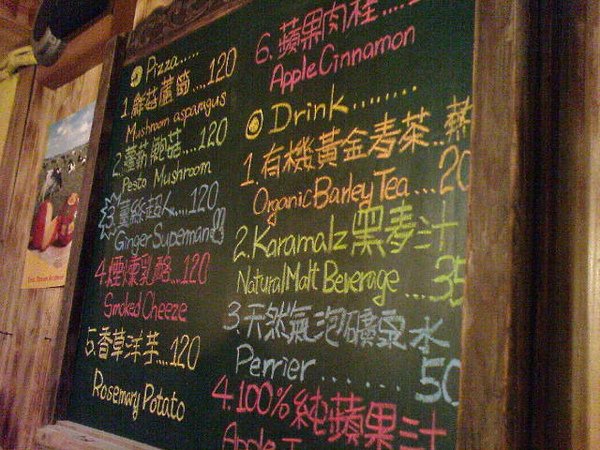 Pizza.....
1.鮮菇蘆筍...120
Mushroom asparagus
2.蘑菇.....120
Pesto Mushroom
3.薑絲超人...120
Ginger Superman
4.煙燻乳酪...120
Smoked Cheeze
5.香草洋芋...120
Rosemary Potato
6.蘋果肉桂....
Apple Cinnamon
Drink........
1.有機黃金麥茶..熱
Organic Barley Tea...20
2.Karamalz 黑麥汁
Natural Malt Beverage ...35
3.天然氣泡礦泉水
Perrier........50
4.100%純蘋果汁
Apple